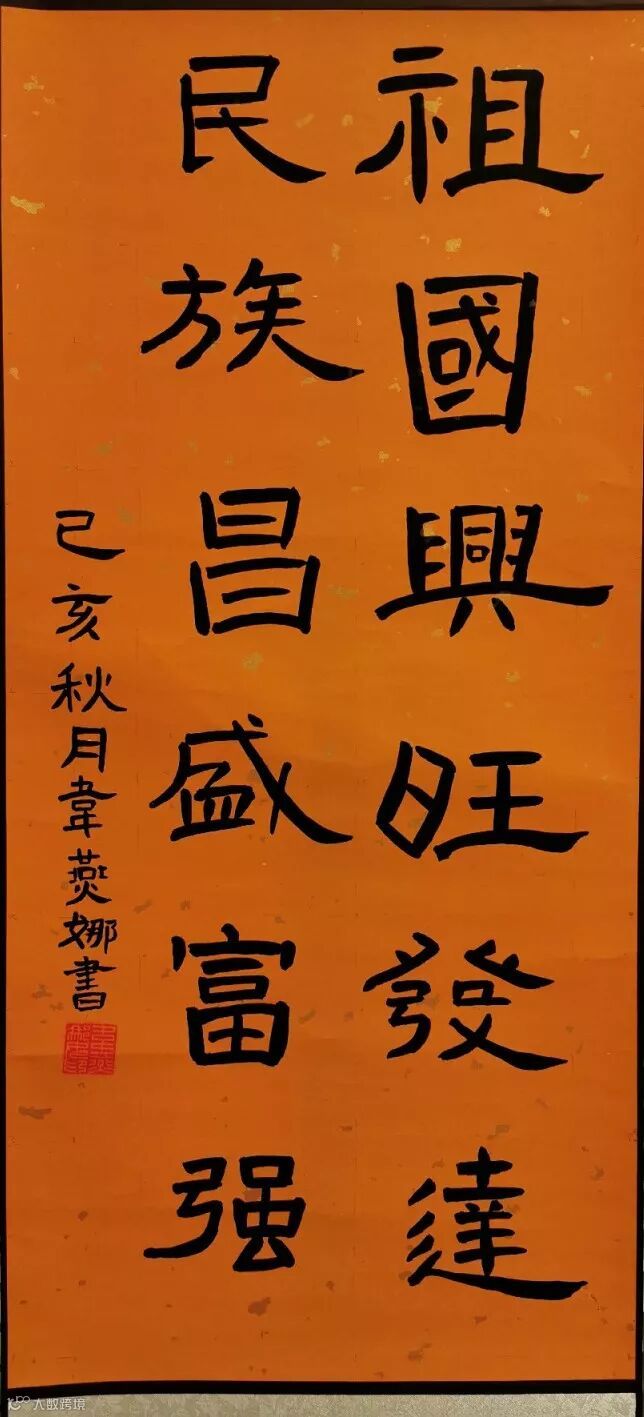 祖國興旺發達
民族昌盛富强
己亥秋月韋燕娜書
大数跨境